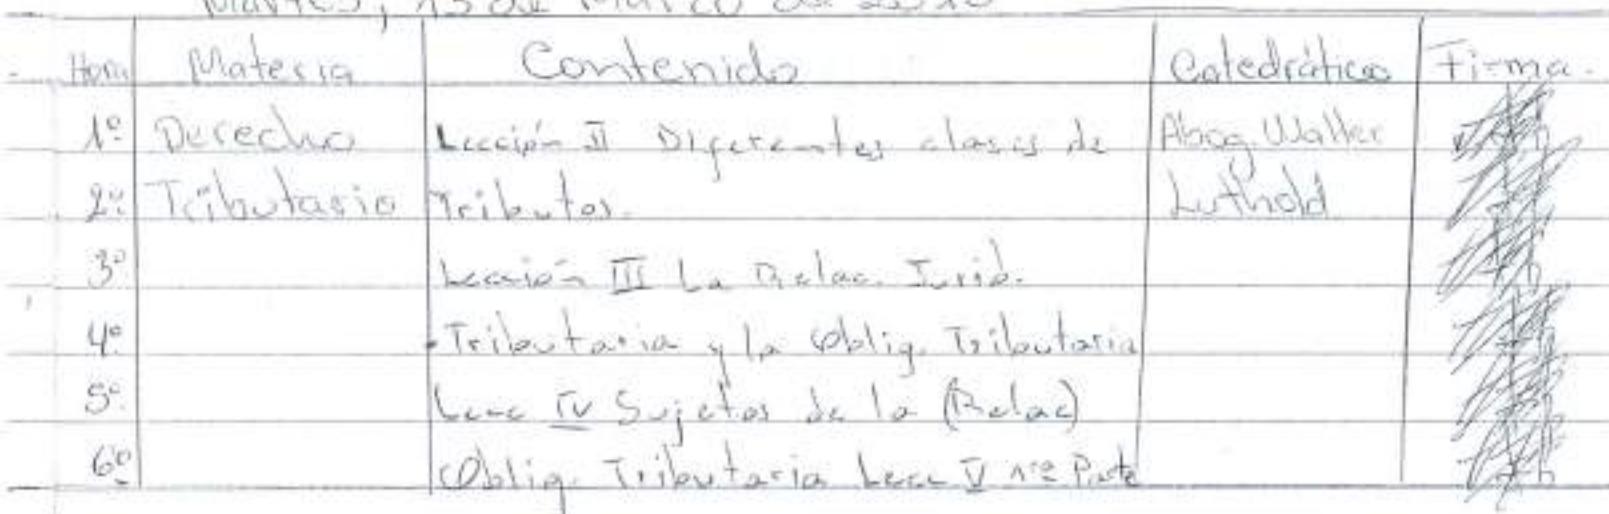 Martes, 13 de Marzo de 2010
Hora Materia Contenido Catedrático Firma.
1º Derecho Lección II Diferentes clases de Abog. Walter
2º Tributario Tributos. Luthold
3º Lección III La Relac. Jurid.
4º Tributaria y la Oblig. Tributaria
5º Lecc IV Sujetos de la (Relac)
6º Oblig. Tributaria Lecc V 1ra Parte